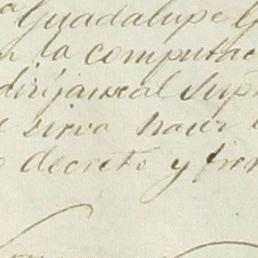 Guadalupe G
la computac
dirijaseal Sup
sirva hacer
decreto y fir